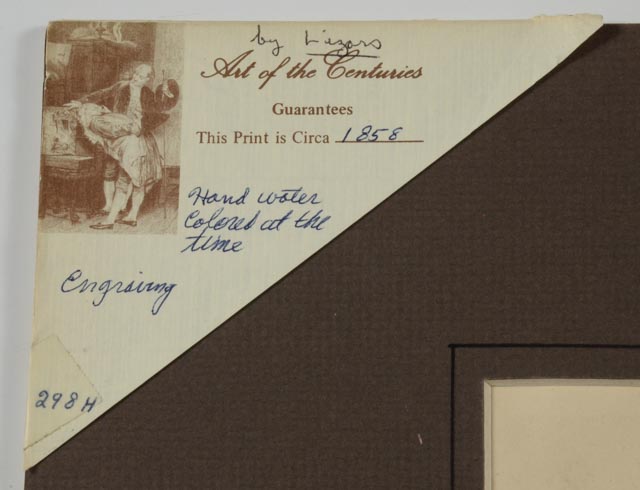 by Lizars
Art of the Centuries
Guarantees
This Print is Circa 1858
Hand water
Colored at the
time
Engraving
298 H